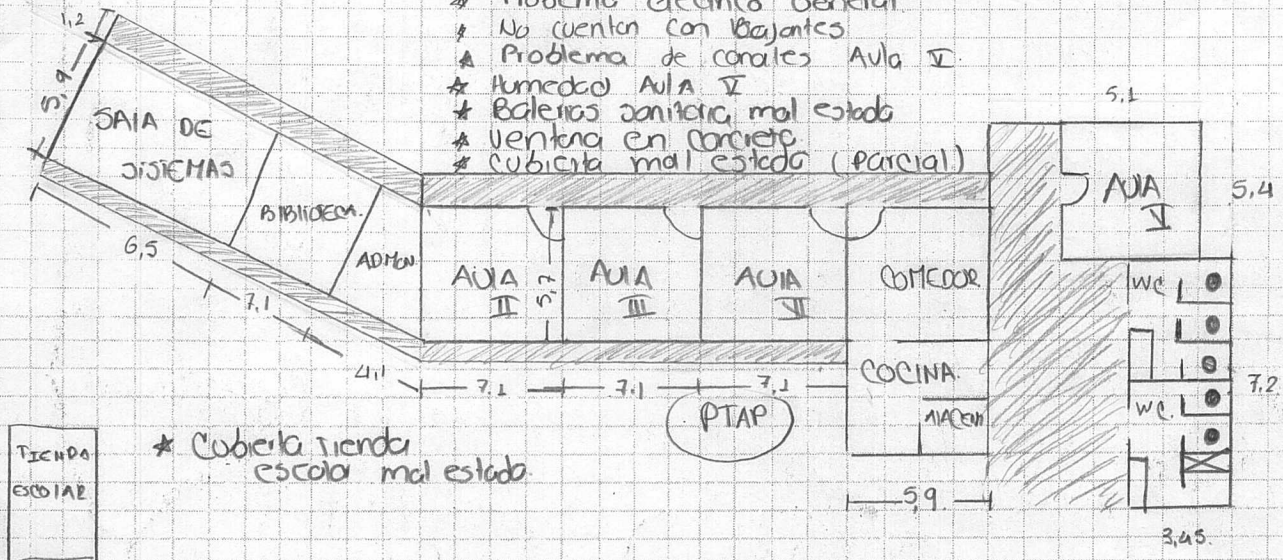 * Problema eléctrico General
* No cuentan con Bajantes
* Problema de canales Aula V.
* Humedad Aula V
* Baterias sanitaria mal estado
* ventana en concreto.
* cubierta mal estado (parcial)
1,2
5,9
SALA DE
SISTEMAS
BIBLIOTECA.
ADMON.
6,5
7,1
4,1
AULA
II
5,7
AULA
III
AULA
VI
COMEDOR
COCINA.
7.1
7.1
7,1
PTAP
5,9
5,1
AULA
V
5,4
WC
WC.
7,2
3,45.
TIENDA
ESCOLAR
* Cubierta Tienda
escolar mal estado.